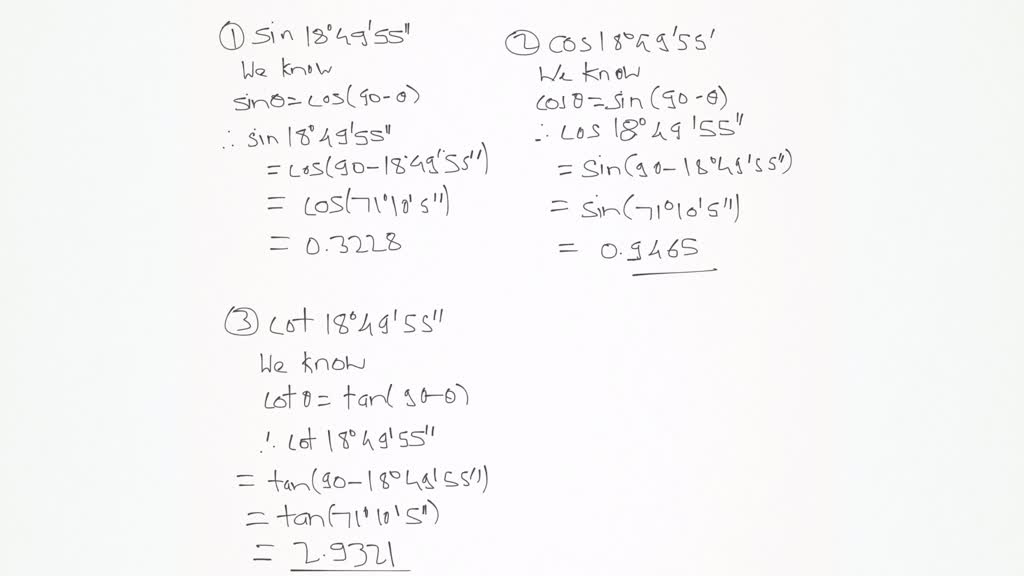 ① sin 18°49'55"
We know
sinθ = cos(90-θ)
∴ sin 18°49'55"
= cos(90-18°49'55")
= cos(71°10'5")
= 0.3228
② cos 18°49'55'
We know
cosθ = sin(90-θ)
∴ cos 18°49'55"
= sin(90-18°49'55")
= sin(71°10'5")
= 0.9465
③ cot 18°49'55"
We know
cotθ = tan(90-θ)
∴ cot 18°49'55"
= tan(90-18°49'55")
= tan(71°10'5")
= 2.9321